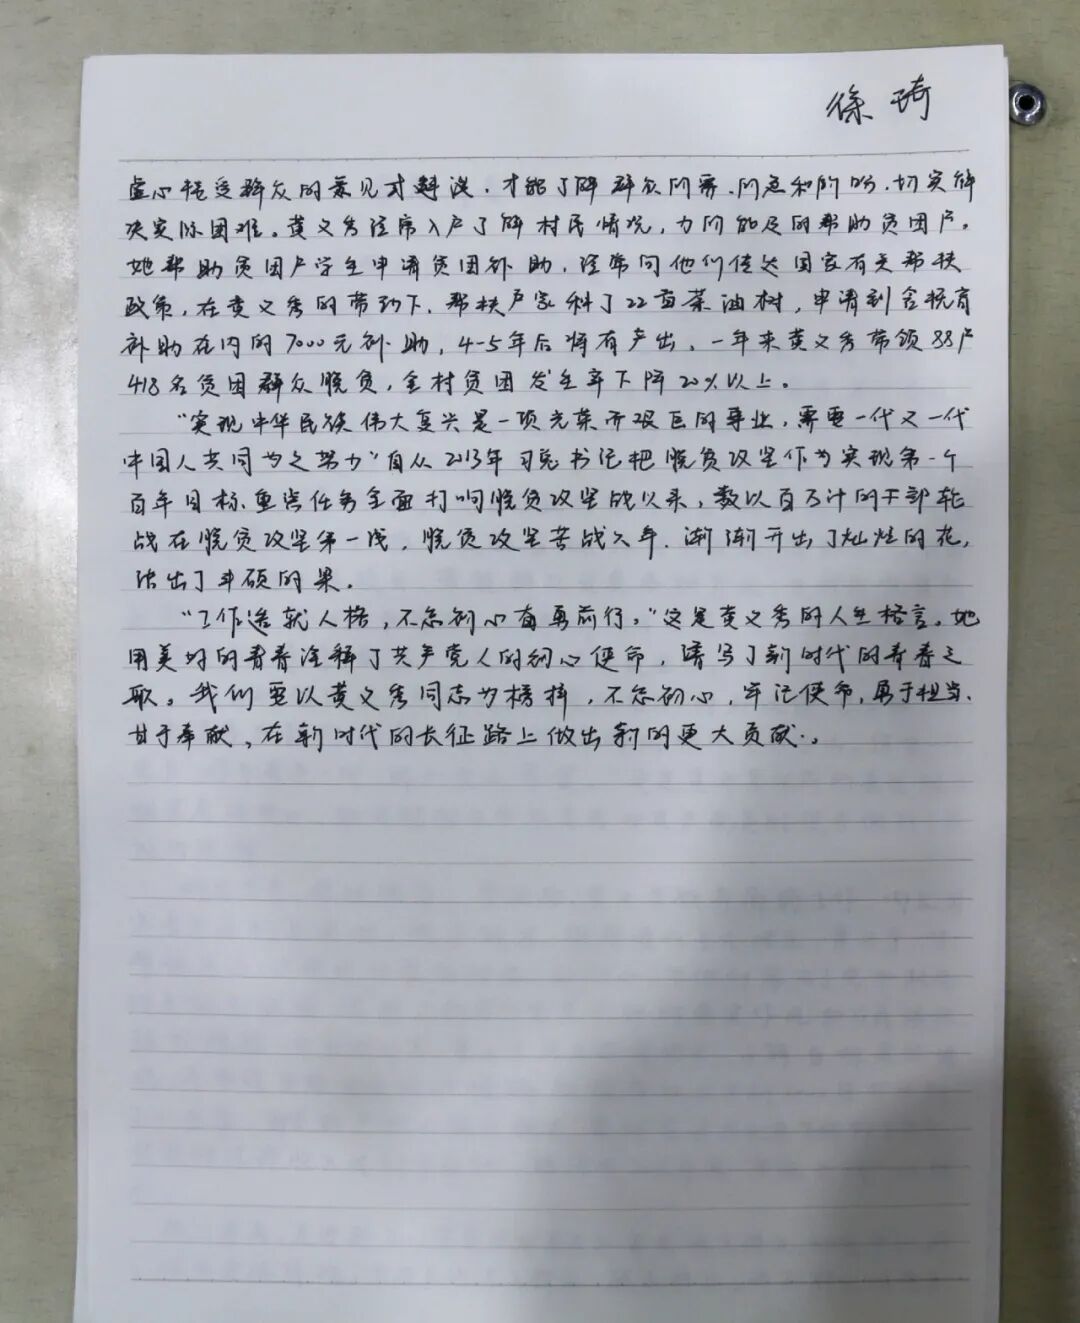 徐琦
虚心接受群众的意见和建议,才能了解群众所需、所急和所盼,切实解
决实际困难。黄文秀经常入户了解村民情况,力所能及的帮助贫困户。
她帮助贫困户学生申请贫困补助,经常向他们传达国家有关帮扶
政策,在黄文秀的带动下,帮扶户家种了22亩茶油树,申请到含抚育
补助在内的7000元补助,4-5年后将有产出,一年来黄文秀带领88户
418名贫困群众脱贫,全村贫困发生率下降20%以上。
“实现中华民族伟大复兴是一项光荣而艰巨的事业,需要一代又一代
中国人共同为之努力”自从2013年习总书记把脱贫攻坚作为实现第一个
百年目标重点任务全面打响脱贫攻坚战以来,数以百万计的干部轮
战在脱贫攻坚第一线,脱贫攻坚苦战六年,渐渐开出了灿烂的花,
结出了丰硕的果。
“工作造就人格,不忘初心奋勇前行。”这是黄文秀的人生格言。她
用美好的青春诠释了共产党人的初心使命,谱写了新时代的青春之
歌。我们要以黄文秀同志为榜样,不忘初心,牢记使命,勇于担当、
甘于奉献,在新时代的长征路上做出新的更大贡献。